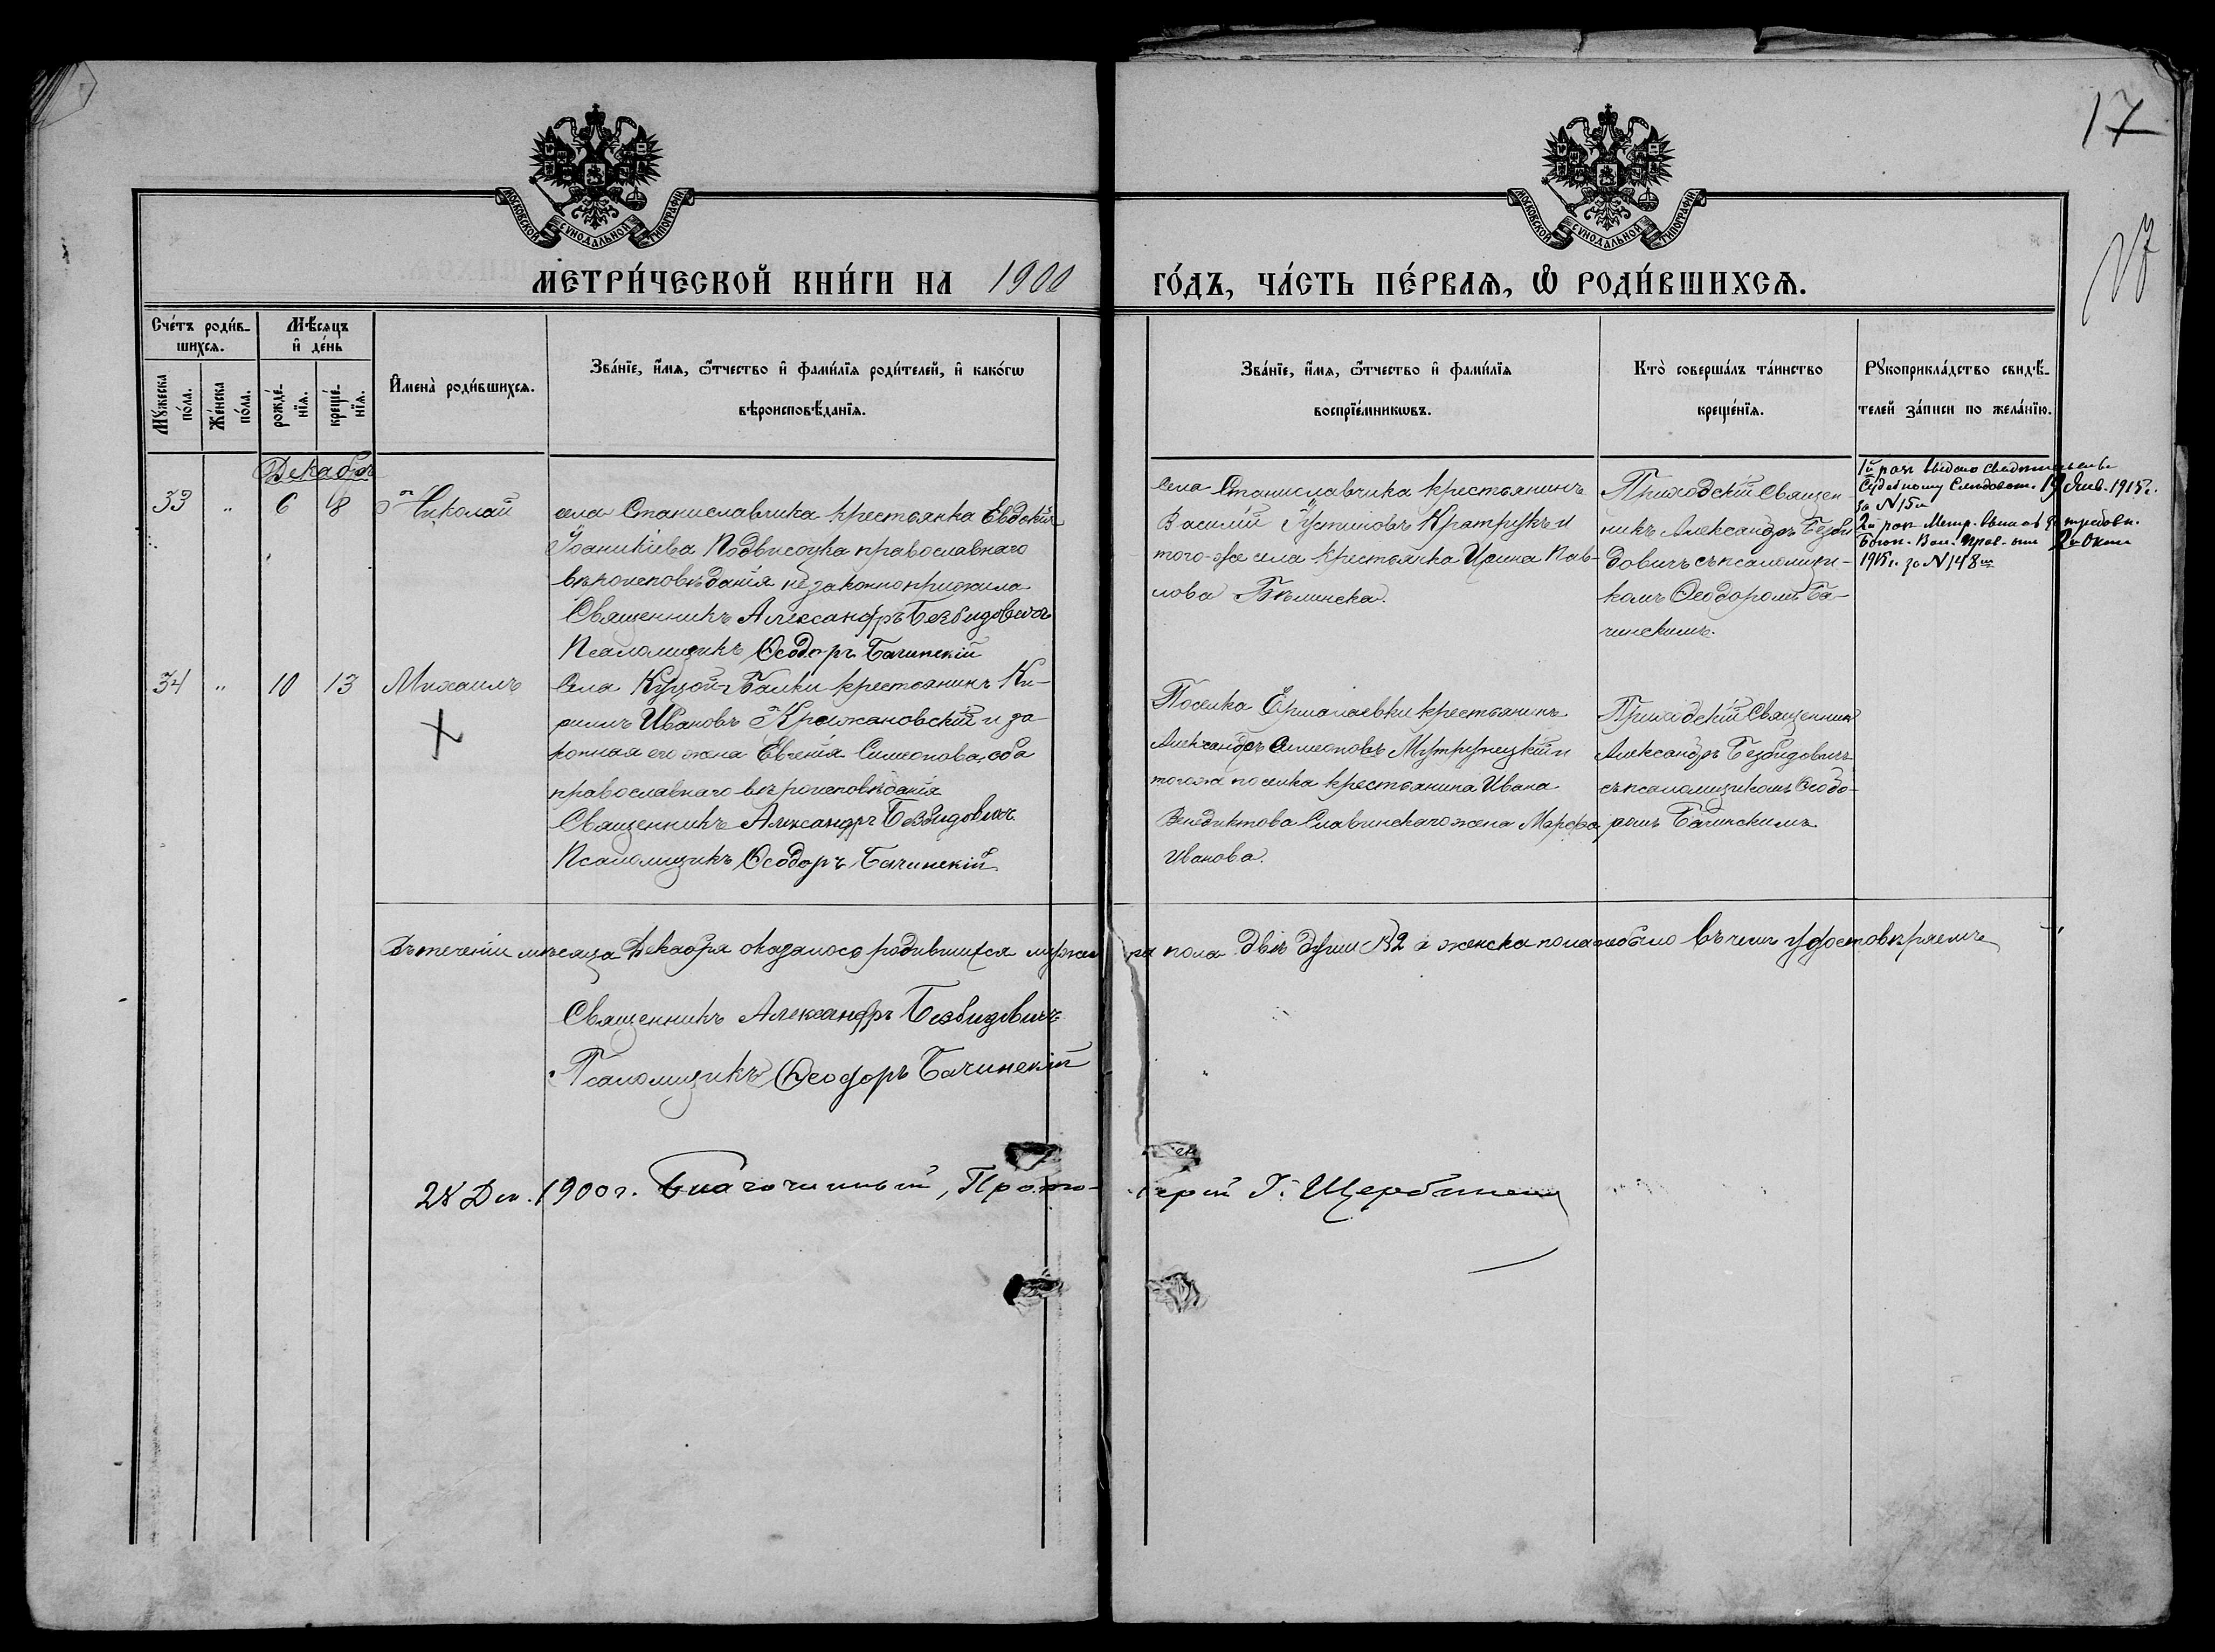 17
17
МОСКОВСКОЙ СѴНОДАЛЬНОЙ ТИПОГРАФІИ
МОСКОВСКОЙ СѴНОДАЛЬНОЙ ТИПОГРАФІИ
МЕТРИ́ЧЕСКОЙ КНИ́ГИ НА 1900 ГО́ДЪ, ЧА́СТЬ ПЕ́РВАѦ, Ѽ РОДИ́ВШИХСѦ.
Сче́тъ роди́в-
шихсѧ.
Мꙋ́жеска по́ла.
Же́нска по́ла.
Мѣ́сѧцъ и҆ де́нь
рожде́-нїѧ.
креще́-нїѧ.
И҆мена̀ роди́вшихсѧ.
Зва́нїе, и҆́мѧ, ѻ҆́тчество и҆ фами́лїѧ роди́телей, и҆ како́гѡ
вѣроисповѣ́данїѧ.
Зва́нїе, и҆́мѧ, ѻ҆́тчество и҆ фами́лїѧ
воспрїе́мникѡвъ.
Кто̀ соверша́лъ та́инство
креще́нїѧ.
Рꙋкоприкла́дство свидѣ́-
телей за́писи по жела́нїю.
Декабрь
33 " 6 8 Николай
села Станиславчика крестьянка Евдокія
Іоаникіева Подвисоцка православнаго
вѣроисповѣданія незаконноприжила
Священникъ Александръ Безвидовичъ
Псаломщикъ Ѳеодоръ Бачинскій
Села Станиславчика крестьянинъ
Василій Іустиновъ Кратрукъ и
того-же села крестьянка Ирина Пав-
лова Бѣлинска.
Приходскій Священ-
никъ Александръ Безви-
довичъ съ псаломщи-
комъ Ѳеодоромъ Ба-
чинскимъ.
1й разъ выдано свидѣтельств.
Судебному Слѣдоват. 19 Янв. 1915 г.
за N 15м
2й разъ Метр. выпись
Вол. Прав. 2го Окт.
1915 г. за N 148м
34 " 10 13 Михаилъ
Х
Села Куцой-Балки крестьянинъ Ки-
рилъ Ивановъ Крыжановскій и за-
конная его жена Евгенія Симеонова, оба
православнаго вѣроисповѣданія
Священникъ Александръ Безвидовичъ
Псаломщикъ Ѳеодоръ Бачинскій
Поселка Ермолаевки крестьянинъ
Александръ Симеоновъ и
тогоже поселка крестьянина Ивана
Венедиктова Славинскаго жена Марѳа
Иванова.
Приходскій Священникъ
Александръ Безвидовичъ
съ псаломщикомъ Ѳеодо-
ромъ Бачинскимъ
Въ теченіи мѣсяца Декабря оказалось родившихся мужеска пола двѣ души № 2 а женска пола не было въ чемъ удостовѣряемъ
Священникъ Александръ Безвидовичъ
Псаломщикъ Ѳеодоръ Бачинскій
28 Дек. 1900 г. Благочинный, Протоіерей Г. Щербински